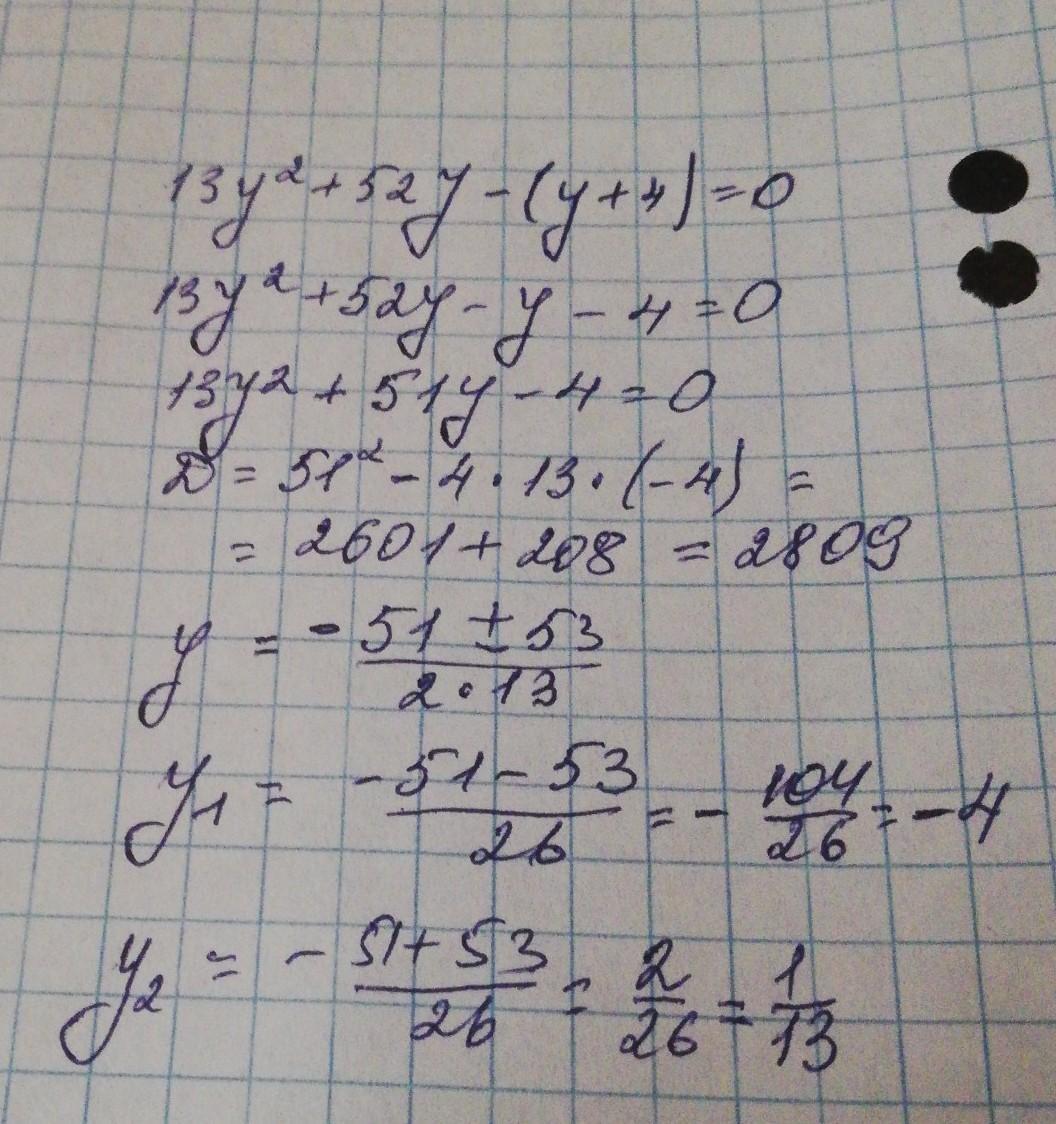 13y² + 52y - (y + 4) = 0
13y² + 52y - y - 4 = 0
13y² + 51y - 4 = 0
D = 51² - 4 · 13 · (-4) =
= 2601 + 208 = 2809
y = (-51 ± 53)/(2 · 13)
y₁ = (-51 - 53)/26 = -104/26 = -4
y₂ = (-51 + 53)/26 = 2/26 = 1/13